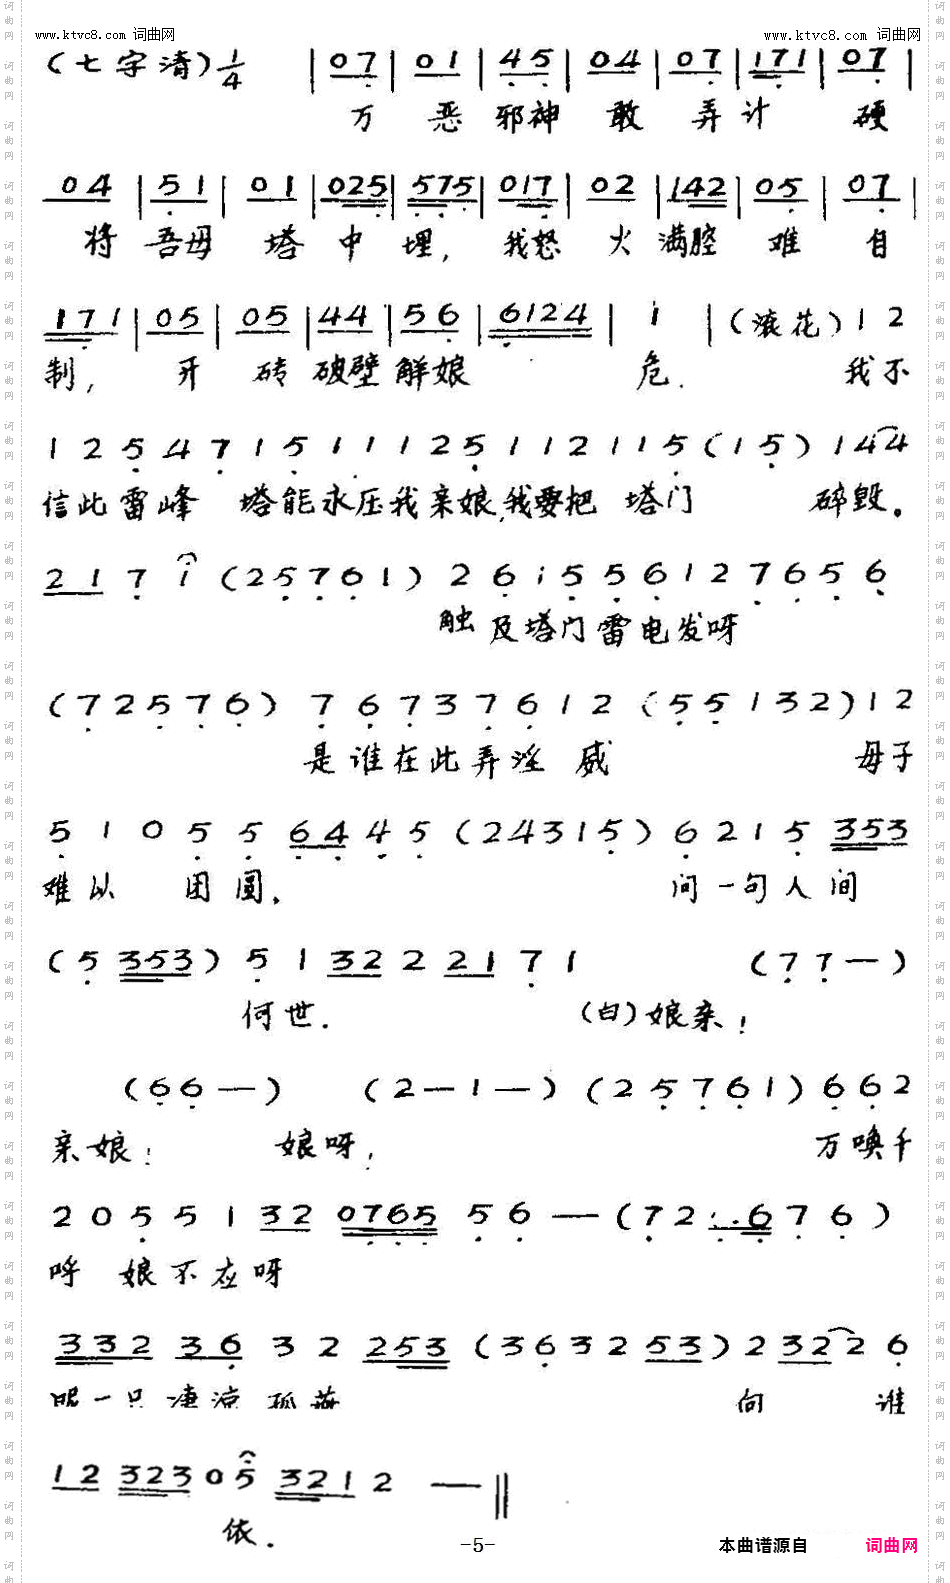 www.ktvc8.com 词曲网 www.ktvc8.com 词曲网
(七字清) 1/4 | 0 7 | 0 1 | 4 5 | 0 4 | 0 7 | 1 7 1 | 0 7 |
万 恶 邪神 敢 弄 计 硬
0 4 | 5 1 | 0 1 | 0 2 5 | 5 7 5 | 0 1 7 | 0 2 | 1 4 2 | 0 5 | 0 7 |
将 吾母 塔 中 埋, 我怒 火 满腔 难 自
1 7 1 | 0 5 | 0 5 | 4 4 | 5 6 | 6 1 2 4 | i | (滚花) 1 2
制, 开 砖 破壁 解娘 危. 我不
1 2 5 4 7 1 5 1 1 1 2 5 1 1 2 1 1 5 (1 5) 1 4 4
信此雷峰 塔能永压我亲娘,我要把 塔门 碎毁。
2 1 7 i (2 5 7 6 1) 2 6 i 5 5 6 1 2 7 6 5 6
触及塔门雷电发呀
(7 2 5 7 6) 7 6 7 3 7 6 1 2 (5 5 1 3 2) 1 2
是谁在此弄淫 威 母子
5 1 0 5 5 6 4 4 5 (2 4 3 1 5) 6 2 1 5 3 5 3
难以 团圆. 问一句人间
(5 3 5 3) 5 1 3 2 2 2 2 1 7 1 (7 7 —)
何世. (白)娘亲!
(6 6 —) (2 — 1 —) (2 5 7 6 1) 6 6 2
亲娘! 娘呀, 万唤千
2 0 5 5 1 3 2 0 7 6 5 5 6 — (7 2 . . 6 7 6)
呼 娘不应呀
3 3 2 3 6 3 2 2 5 3 (3 6 3 2 5 3) 2 3 2 2 6
一只凄凉孤 向 谁
1 2 3 2 3 0 5 3 2 1 2 — ‖
依.
-5- 本曲谱源自 词曲网